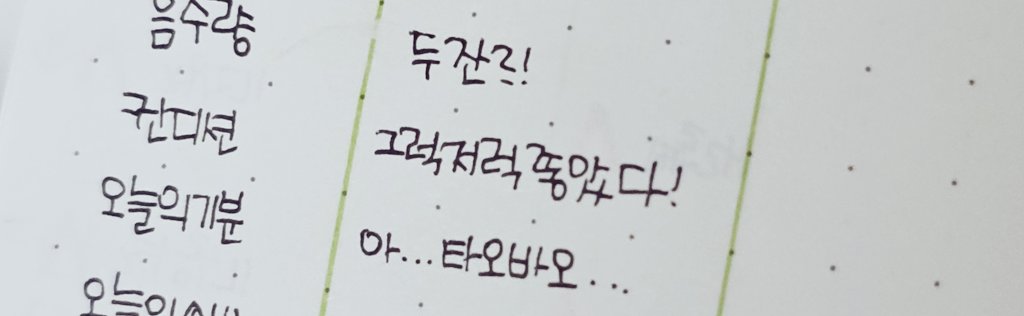 음수량 두잔??!
컨디션 그럭저럭 좋았다!
오늘의기분 아...타오바오...
오늘의